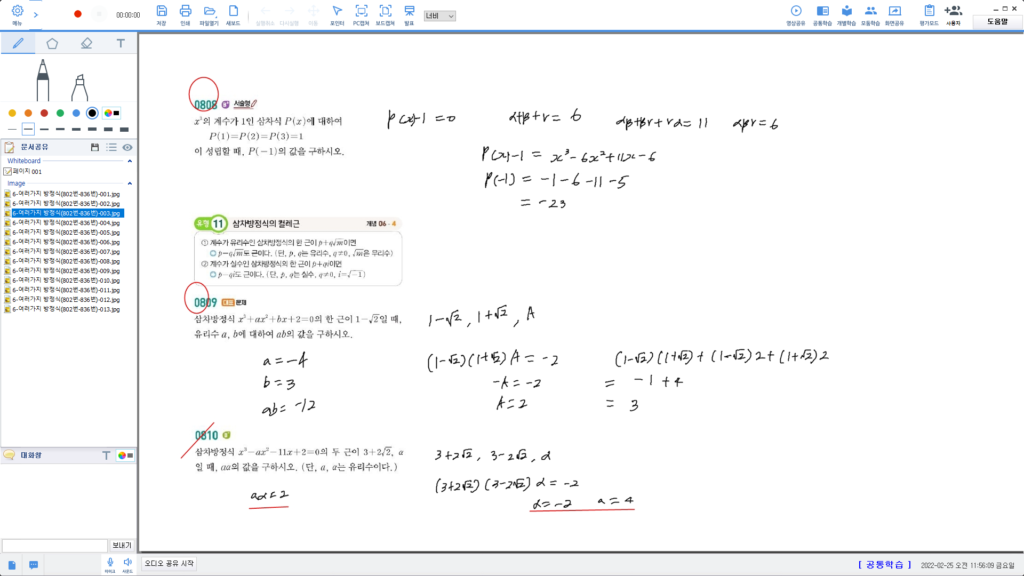 메뉴
00:00:00
저장
인쇄
파일열기
새보드
포인터
PC캡쳐
보드캡쳐
발표
너비
영상공유
공동학습
개별학습
모둠학습
화면공유
평가모드
사용자
도움말
문서공유
Whiteboard
페이지 001
Image
6-여러가지 방정식(802번-836번)-001.jpg
6-여러가지 방정식(802번-836번)-002.jpg
6-여러가지 방정식(802번-836번)-003.jpg
6-여러가지 방정식(802번-836번)-004.jpg
6-여러가지 방정식(802번-836번)-005.jpg
6-여러가지 방정식(802번-836번)-006.jpg
6-여러가지 방정식(802번-836번)-007.jpg
6-여러가지 방정식(802번-836번)-008.jpg
6-여러가지 방정식(802번-836번)-009.jpg
6-여러가지 방정식(802번-836번)-010.jpg
6-여러가지 방정식(802번-836번)-011.jpg
6-여러가지 방정식(802번-836번)-012.jpg
6-여러가지 방정식(802번-836번)-013.jpg
대화창
보내기
0808 서술형
x³의 계수가 1인 삼차식 P(x)에 대하여
P(1)=P(2)=P(3)=1
이 성립할 때, P(-1)의 값을 구하시오.
P(x)-1=0 α+β+γ=6 αβ+βγ+γα=11 αβγ=6
P(x)-1 = x³-6x²+11x-6
P(-1) = -1-6-11-5
= -23
유형 11 삼차방정식의 켤레근 개념 06-4
① 계수가 유리수인 삼차방정식의 한 근이 p+q√m이면
p-q√m도 근이다. (단, p, q는 유리수, q≠0, √m은 무리수)
② 계수가 실수인 삼차방정식의 한 근이 p+qi이면
p-qi도 근이다. (단, p, q는 실수, q≠0, i=√-1)
0809 대표 문제
삼차방정식 x³+ax²+bx+2=0의 한 근이 1-√2일 때,
유리수 a, b에 대하여 ab의 값을 구하시오.
1-√2, 1+√2, A
a=-4
b=3
ab=-12
(1-√2)(1+√2)A=-2
-A=-2
A=2
(1-√2)(1+√2)+(1-√2)2+(1+√2)2
= -1+4
= 3
0810
삼차방정식 x³-ax²-11x+2=0의 두 근이 3+2√2, α
일 때, aα의 값을 구하시오. (단, a, α는 유리수이다.)
aα=2
3+2√2, 3-2√2, α
(3+2√2)(3-2√2)α=-2
α=-2 a=4
마이크
사운드
오디오 공유 시작
[ 공동학습 ]
2022-02-25 오전 11:56:09 금요일